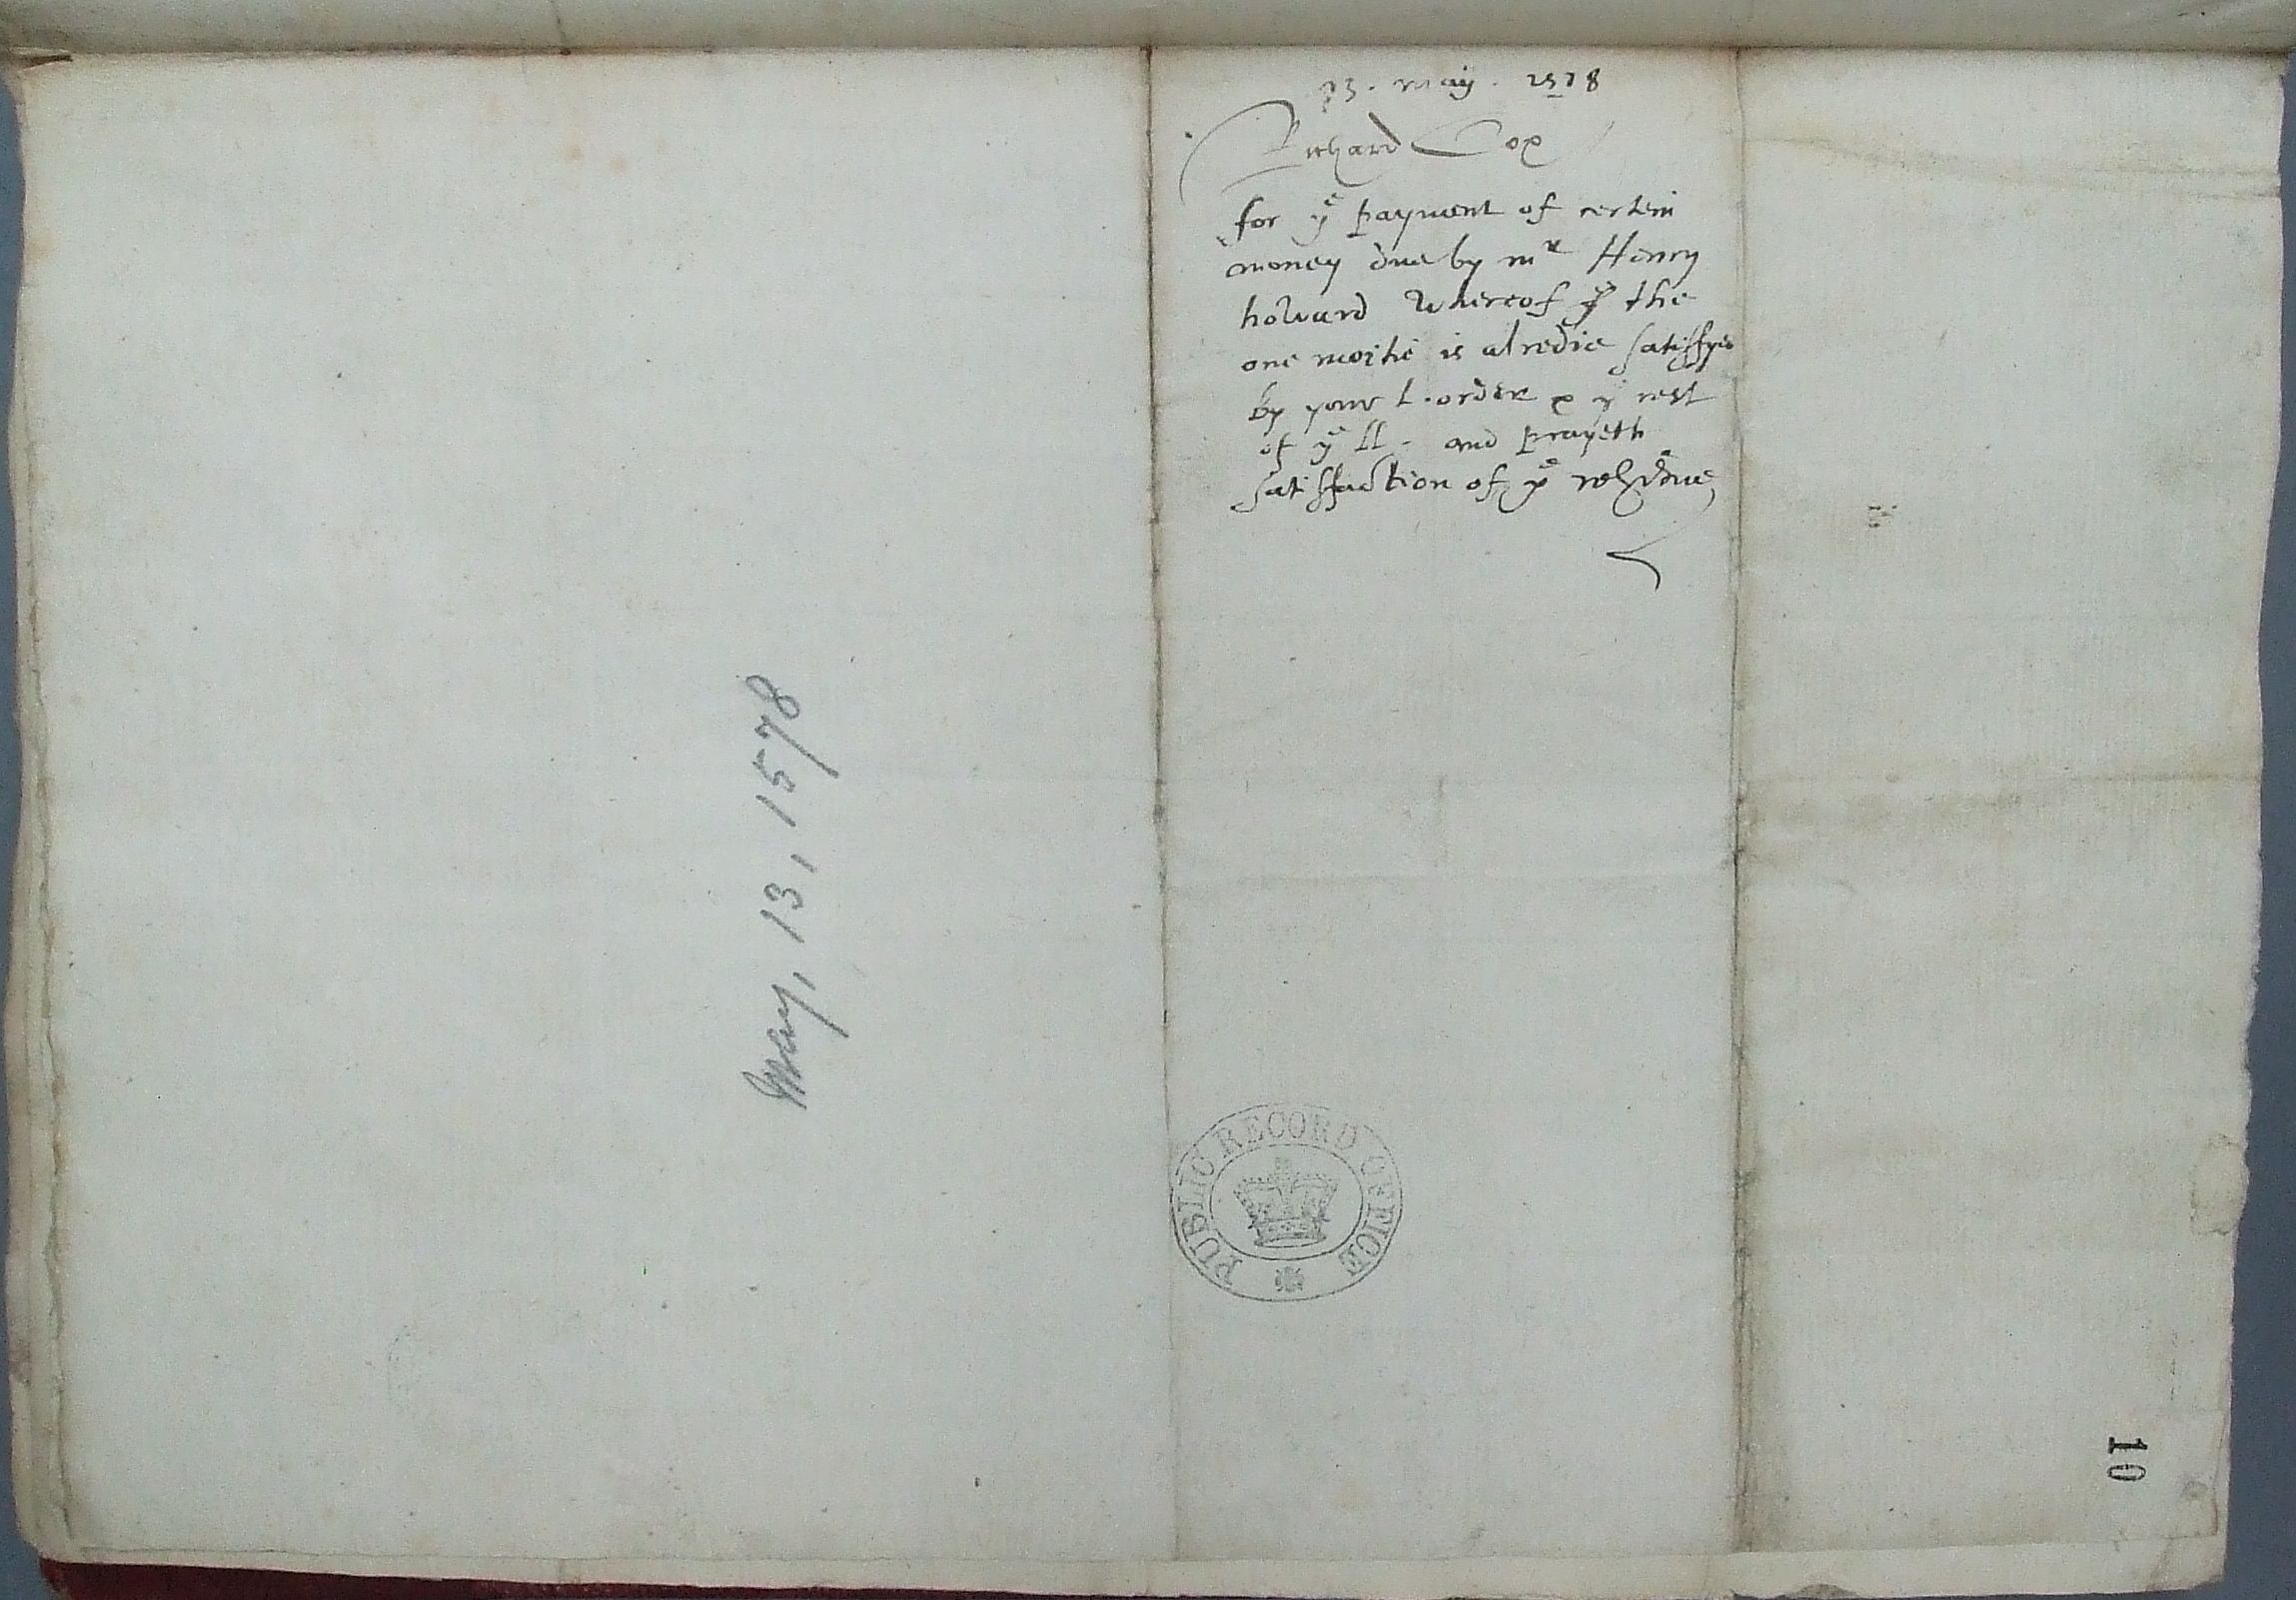 13. may. 1578
Richard Cox
for yͤ payment of certein
money due by mr Henry
howard whereof the
one moitie is alredie satisfyed
by your L. order & yͤ rest
of yͤ LL. and prayeth
satisfaction of yͤ residue
May, 13, 1578
PUBLIC RECORD OFFICE
10